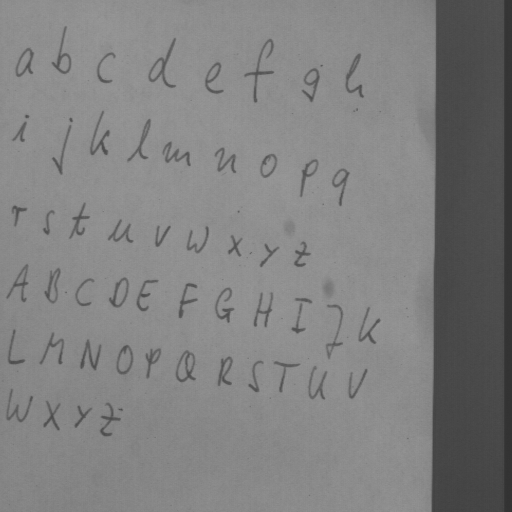 a b c d e f g h
i j k l m n o p q
r s t u v w x y z
A B C D E F G H I J K
L M N O P Q R S T U V
W X Y Z